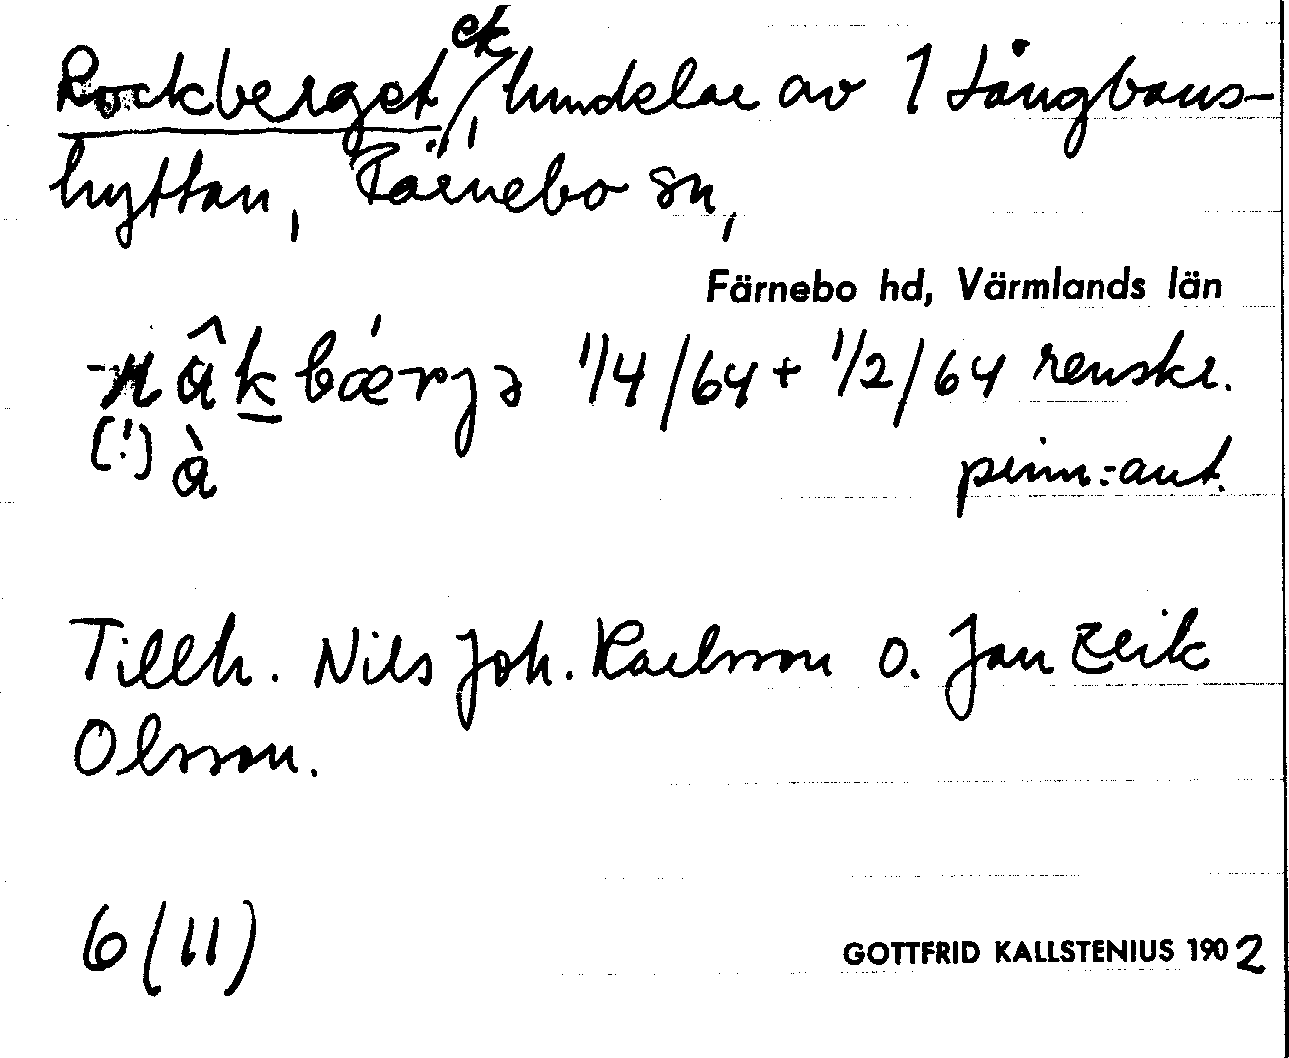 Rockberget, ck / hmdelar av 1 Långbans-
hyttan, Färnebo sn,
Färnebo hd, Värmlands län
råkbærjə 1/4/64 + 1/2/64 renskr.
(!) à penn.-ant.
Tillh. Nils Joh. Karlsson o. Jan Erik
Olsson.
6(11) GOTTFRID KALLSTENIUS 1902